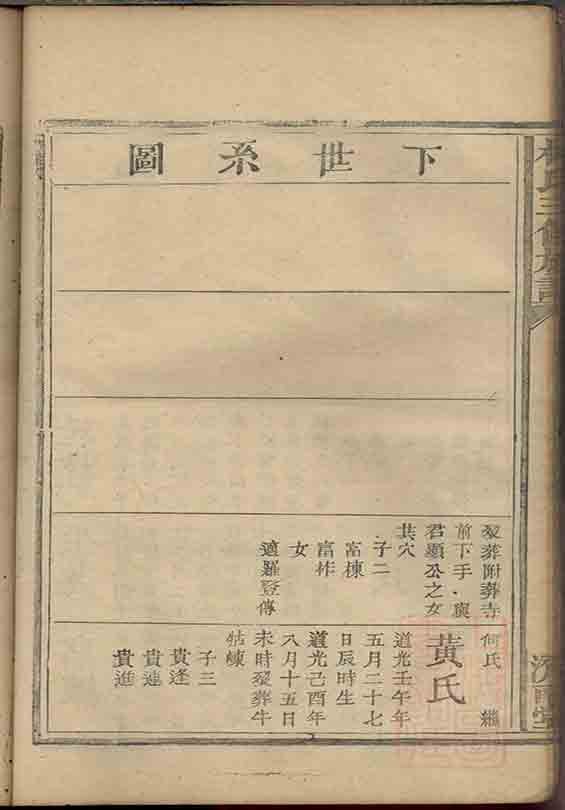 下世系圖
歿葬附葬寺
前下手與
君顯公之女
共穴
子二
富棟
富柞
女
適羅登傳
何氏 繼
黃氏
道光壬午年
五月二十七
日辰時生
道光己酉年
八月十五日
未時歿葬牛
牯崠
子三
貴逢
貴連
貴進
氏三修族譜
堂